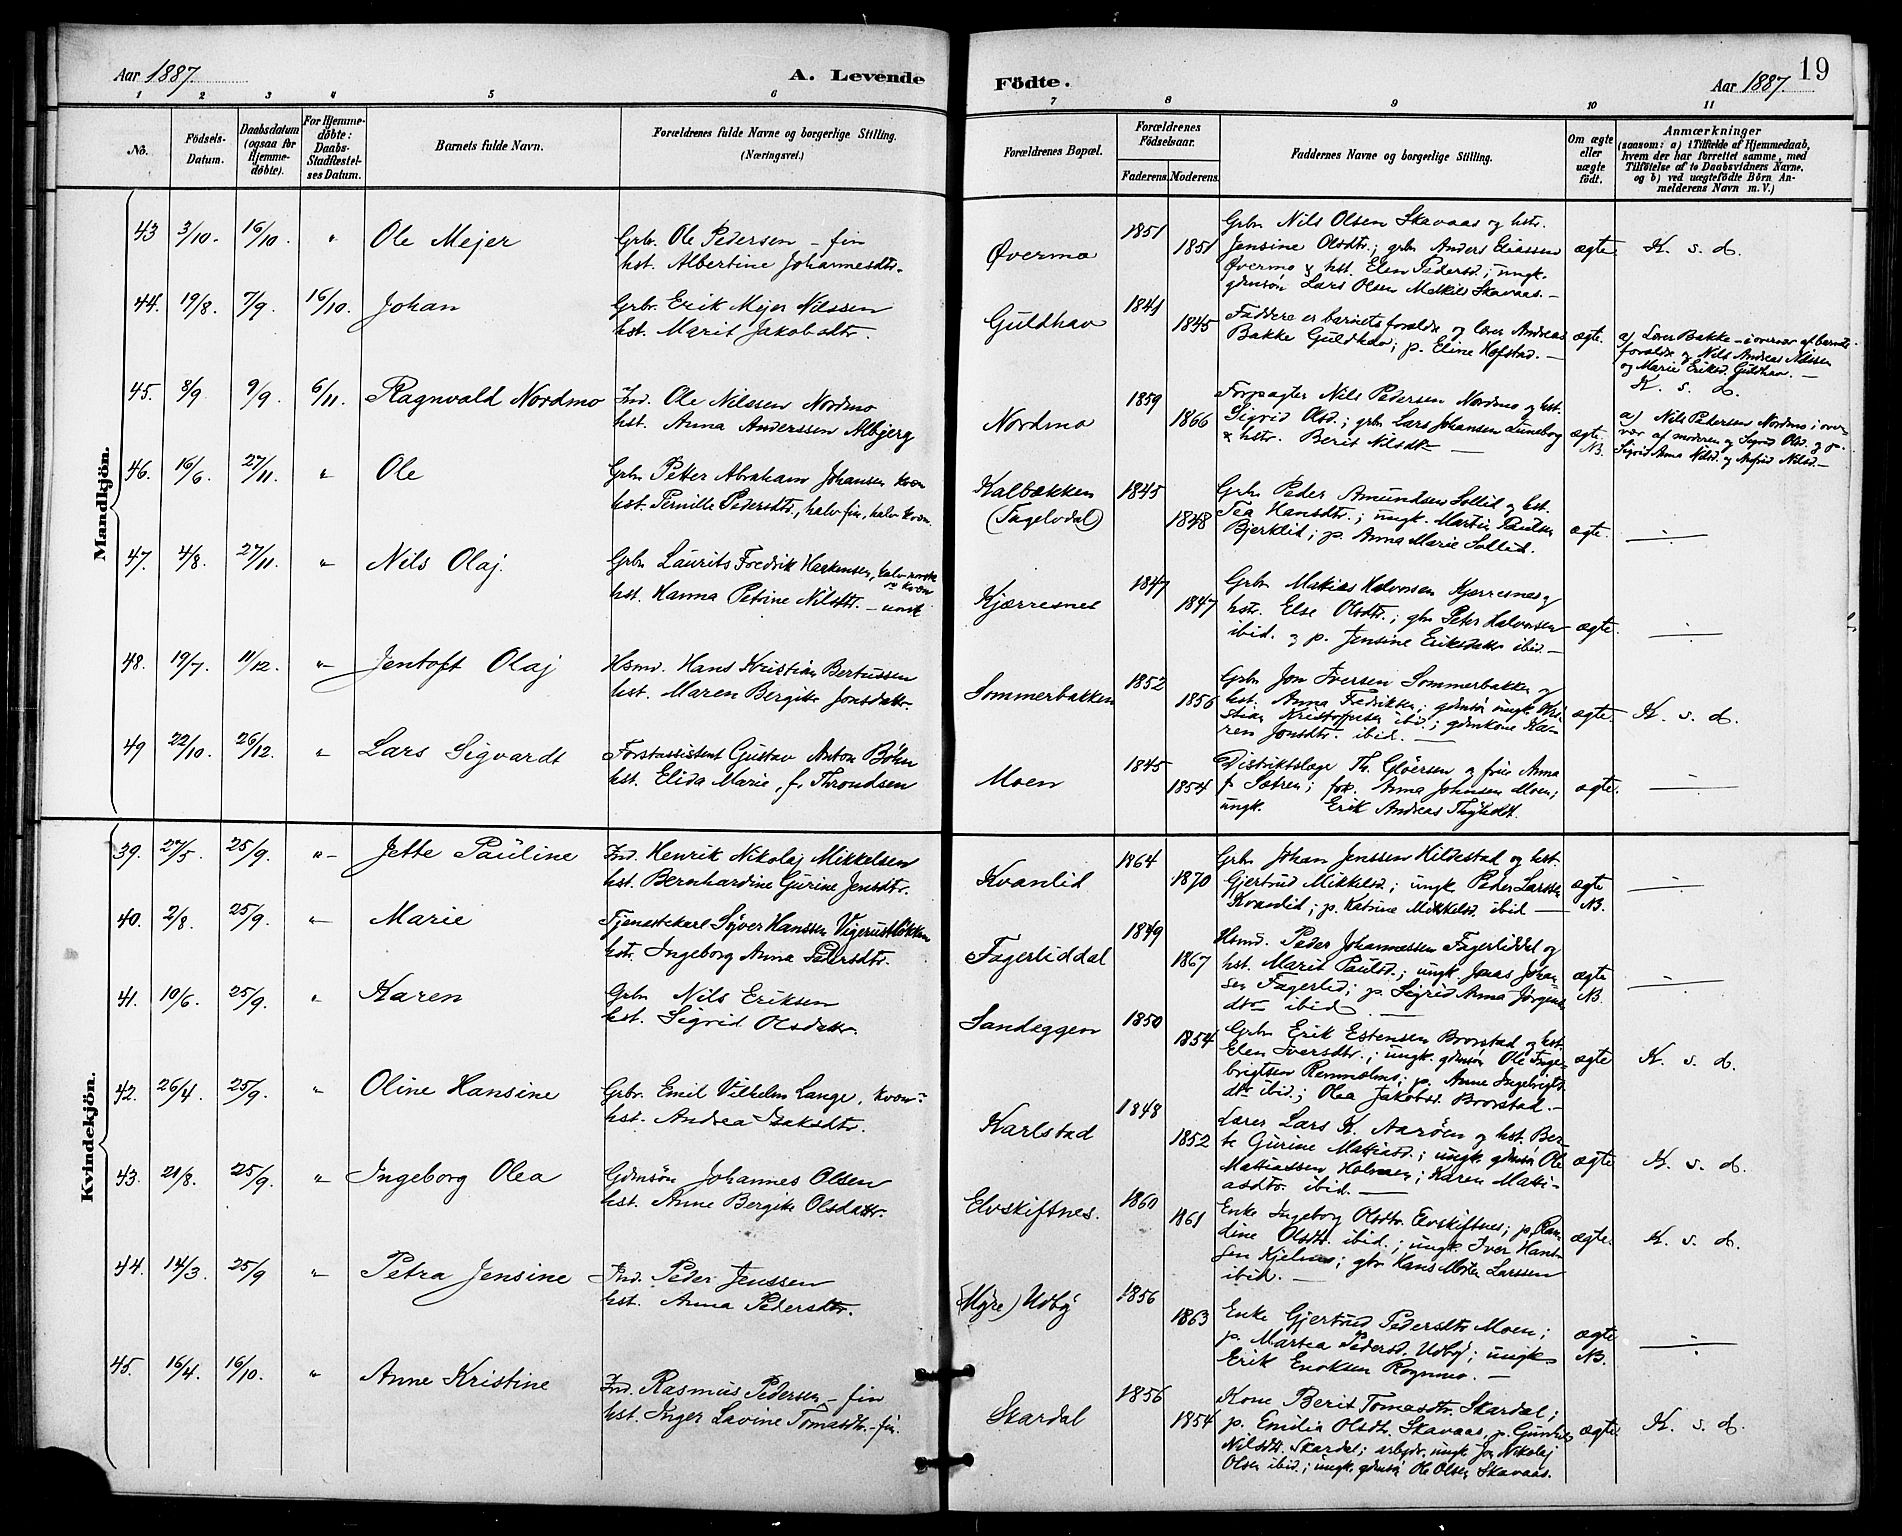 Aar 1887.
A. Levende
Födte.
Aar 1887.
19
1 2 3 4 5 6 7 8 9 10 11
No.
Födsels-Datum.
Daabsdatum (ogsaa for Hjemmedöbte).
For Hjemmedöbte: Daabs-Stadfæstelses Datum.
Barnets fulde Navn.
Forældrenes fulde Navne og borgerlige Stilling. (Næringsvei.)
Forældrenes Bopæl.
Forældrenes Födselsaar.
Faderens. Moderens.
Faddernes Navne og borgerlige Stilling.
Om ægte eller uægte födt.
Anmærkninger
(saasom: a) i Tilfælde af Hjemmedaab,
hvem der har forrettet samme, med
Tilföielse af to Daabsvidners Navne.
og b) ved uægtefödte Börn An-
melderens Navn m. V.)
Mandkjön.
43 3/10. 16/10. " Ole Mejer
Grbr. Ole Pedersen – fin
hst. Albertine Johannesdtr.
Øvermo 1851 1851
Grbr Nils Olsen Skavaas og hst.
Jensine Olsdtr.; grbr Anders Eliassen
Øvermo & hst. Elen Pedersd.; ungk.
gdmsøn Lars Olsen Skavaas. –
ægte. K. s. d.
44. 19/8. 7/9. 16/10. Johan
Grbr. Erik Mejer Nilssen
hst. Marit Jakobsdtr.
Guldhav 1841 1845
Faddere er barnets forældre og lærer Andreas
Bakke Guldhav; p. Eline Hofstad. –
ægte. a) Lærer Bakke – i overvær af barnets
forældre og Nils Andreas Nilssen
og Marie Eriksd. Guldhav. –
K. s. d.
45. 8/9 9/9. 6/11. Ragnvald Nordmo
Ind. Ole Nilssen Nordmo
hst. Anna Anderssen Albjerg
Nordmo 1859 1866
Forpagter Nils Pedersen Nordmo og hst.
Sigrid Olsd.; grbr Lars Johansen Luneborg
& hstr. Berit Nilsdtr –
ægte. NB.
a) Nils Pedersen Nordmo i over-
vær af moderen og Sigrid Olsd. og p.
Sigrid Anna Nilsd. og Nilsd. –
46. 16/6. 27/11. " Ole
Grbr Petter Abraham Johansen kvæn
hst. Pernille Pedersdtr., halv fin, halv kvæn.
Kalbækken
(Fagelvdal) 1845 1848
Grbr Peder Amundsen Sollid og hst.
Tea Hansdtr.; ungk. Martin Paulsen
Bjerklid; p. Anna Marie Sollid.
ægte. –:–
47. 4/8. 27/11. " Nils Olaj.
Grbr Laurits Fredrik Haakensen, halv norsk
kvæn
hst. Hanna Petrine Nilsdtr. – norsk
Kjærresnes 1847 1847
Grbr Matias Halvorsen Kjærresnes og
hst. Else Olsdtr.; grbr Peter Halvorsen
ibid. og p. Jensine Eriksdatter ibid. –
ægte. –:–
48. 19/7. 11/12. " Jentoft Olaj
Hsmd. Hans Kristian Bertussen
hst. Maren Bergitte Jonsdatr.
Sommerbakken 1852 1856
Grbr Jon Iversen Sommerbakken og
hst. Anna Fredriksen; gdmsøn ungk. Kri-
stian Kristoffersen ibid.; gdmkone Ka-
ren Jonsdtr. ibid. –
ægte. K. s. d.
49 22/10. 26/12. " Lars Sigvardt
Forstassistent Gustav Anton Bøhn
hst. Elida Marie, f. Throndsen
Moen 1845 1854
Distriktslæge Th. Gløersen og frue Anna
f. Sætren; frk. Anna Johnsen Moen;
ungk. Erik Andreas
ægte. –:–
Kvindekjön.
39. 27/5. 25/9. " Jette Pauline
Ind. Henrik Nikolaj Mikkelsen
hst. Bernhardine Gurine Jensdtr.
Kvanlid 1864 1870
Grbr Johan Jenssen Hildestad og hst.
Gjertrud Mikkelsd.; ungk. Peder Larssen
Kvanlid; p. Katrine Mikkelsd. ibid –
ægte NB. –:–
40. 2/8. 25/9. " Marie
Tjenestekarl Syver Hanssen Vigerustløkken
hstr. Ingeborg Anna Pedersdtr.
Fagerliddal 1849 1867
Hsmd. Peder Johannessen Fagerliddal og
hst. Marit Paulsd.; ungk. Jonas Johan-
sen Fagerlid; p. Sigrid Anna Jørgens-
dtr ibid –
ægte NB. –:–
41. 10/6. 25/9. " Karen
Grbr Nils Eriksen
hst. Sigrid Olsdatr.
Sandeggen 1850 1854
Grbr Erik Estensen Brorstad og hst.
Elen Iversdtr.; ungk. gdmsøn Ole Inge-
brigtsen Remmelmo; p. Anne Ingebrigts-
dtr ibid.; Olea Jakobsd. Brorstad. –
ægte K. s. d.
42. 26/4. 25/9. " Oline Hansine
Grbr. Emil Vilhelm Lange, kvæn
hst. Andrea Isaksdtr.
Karlstad 1848 1852
Lærer Lars K. Aarøen og hst. Ber-
te Gurine Matiasd.; ungk. gdmsøn Ole
Mattiassen ; Karen Mati-
asdtr. ibid. –
ægte K. s. d.
43. 21/8. 25/9. " Ingeborg Olea
Gdmsøn Johannes Olsen
hst. Anne Bergitte Olsdatr.
Elvskiftnes. 1860 1861
Enke Ingeborg Olsdtr. Elvskiftnes; p. Ran-
dine Olsdtr. ibid.; ungk. Iver Hans-
sen Kjelnes; grbr Hans Morten Larssen
ibid. –
ægte. K. s. d.
44. 14/3. 25/9 " Petra Jensine
Ind. Peder Jenssen
hst. Anna Pedersdtr.
(Myre) Udby 1856 1863
Enke Gjertrud Pedersdtr Moen;
p. Martea Pedersd. Udby; ungk
Erik Enoksen Rognmo. –
ægte NB. –:–
45. 16/4. 16/10. " Anne Kristine
Ind. Rasmus Pedersen – fin
hst. Inger Lavine Tomasdtr. – fin.
Skardal 1856 1854
Kone Berit Tomasdtr. Skardal;
p. Emilie Olsdtr. Skavaas, p. Gunhild
Nilsdtr. Skardal; arbejdr. ungk. Jon Nikolaj
Olsen ibid.; ungk. gdmsøn Ole Olsen Skavaas.
ægte. K. s. d.